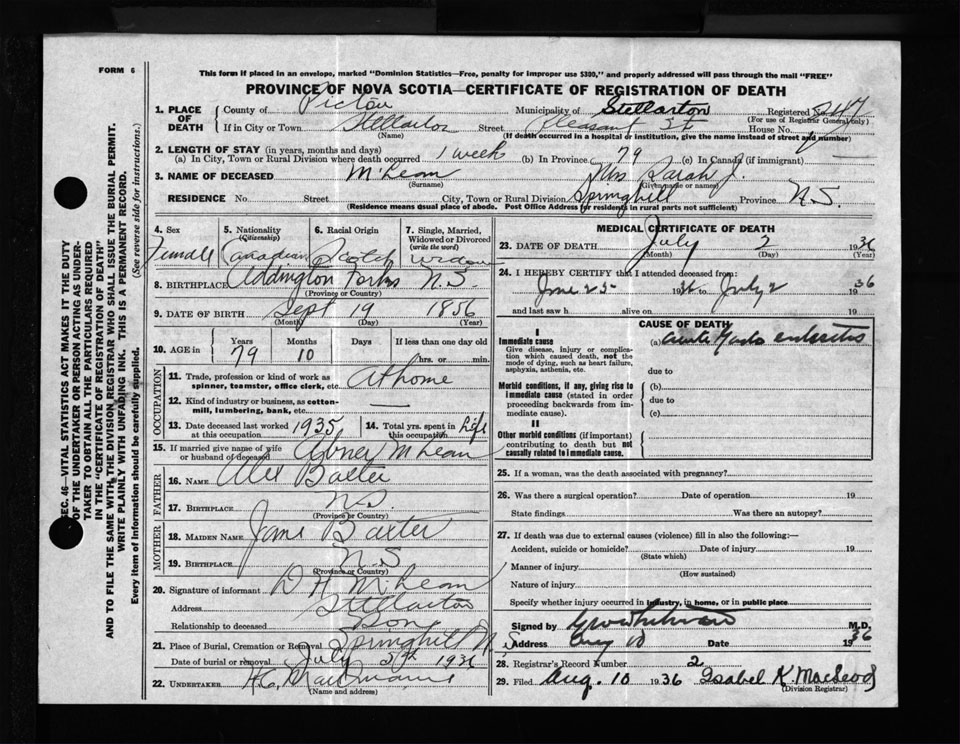 FORM 6
This form if placed in an envelope, marked "Dominion Statistics—Free, penalty for improper use $300," and properly addressed will pass through the mail "FREE"
PROVINCE OF NOVA SCOTIA—CERTIFICATE OF REGISTRATION OF DEATH
1. PLACE OF DEATH
County of Pictou Municipality of Stellarton Registered No.
(For use of Registrar General only)
If in City or Town Stellarton Street Pleasant St House No.
(Name) (If death occurred in a hospital or institution, give the name instead of street and number)
2. LENGTH OF STAY (in years, months and days)
(a) In City, Town or Rural Division where death occurred 1 week (b) In Province 79 (c) In Canada (if immigrant) —
3. NAME OF DECEASED McLean Mrs Sarah J.
(Surname) (Given name or names)
RESIDENCE No. Street City, Town or Rural Division Springhill Province N.S.
(Residence means usual place of abode. Post Office Address for residents in rural parts not sufficient)
4. Sex Female
5. Nationality (Citizenship) Canadian
6. Racial Origin Scotch
7. Single, Married, Widowed or Divorced (write the word) Widow
8. BIRTHPLACE Addington Forks N.S.
(Province or Country)
9. DATE OF BIRTH Sept 19 1856
(Month) (Day) (Year)
10. AGE in Years 79 Months 10 Days If less than one day
hrs. or min.
OCCUPATION
11. Trade, profession or kind of work as spinner, teamster, office clerk, etc. At home
12. Kind of industry or business, as cotton-mill, lumbering, bank, etc. —
13. Date deceased last worked at this occupation 1935
14. Total yrs. spent in this occupation Life
15. If married give name of wife or husband of deceased Abner McLean
FATHER
16. NAME Alex Baxter
17. BIRTHPLACE N.S.
(Province or Country)
MOTHER
18. MAIDEN NAME Jane Baxter
19. BIRTHPLACE N.S
(Province or Country)
20. Signature of informant D H McLean
Address Stellarton
Relationship to deceased Son
21. Place of Burial, Cremation or Removal Springhill N.S
Date of burial or removal July 5th 1936
22. UNDERTAKER H.C.
(Name and address)
MEDICAL CERTIFICATE OF DEATH
23. DATE OF DEATH July 2 1936
(Month) (Day) (Year)
24. I HEREBY CERTIFY that I attended deceased from:
June 25 1936 to July 2 1936
and last saw h alive on 19
CAUSE OF DEATH
I
Immediate cause
Give disease, injury or complication which caused death, not the mode of dying, such as heart failure, asphyxia, asthenia, etc.
(a) acute Gastro enteritis
due to
Morbid conditions, if any, giving rise to immediate cause (stated in order proceeding backwards from immediate cause).
(b)
due to
(c)
II
Other morbid conditions (if important) contributing to death but not causally related to immediate cause.
25. If a woman, was the death associated with pregnancy?
26. Was there a surgical operation? Date of operation 19
State findings Was there an autopsy?
27. If death was due to external causes (violence) fill in also the following:—
Accident, suicide or homicide? Date of injury 19
(State which)
Manner of injury
(How sustained)
Nature of injury
Specify whether injury occurred in industry, in home, or in public place
Signed by Whitman M.D.
Address Date Aug 10 1936
28. Registrar's Record Number 2
29. Filed Aug. 10 1936 Isabel K. MacLeod
(Division Registrar)
SEC. 46—VITAL STATISTICS ACT MAKES IT THE DUTY
OF THE UNDERTAKER OR PERSON ACTING AS UNDER-
TAKER TO OBTAIN ALL THE PARTICULARS REQUIRED
IN THE "CERTIFICATE OF REGISTRATION OF DEATH"
AND TO FILE THE SAME WITH THE DIVISION REGISTRAR WHO SHALL ISSUE THE BURIAL PERMIT.
WRITE PLAINLY WITH UNFADING INK. THIS IS A PERMANENT RECORD.
Every item of information should be carefully supplied. (See reverse side for instructions.)